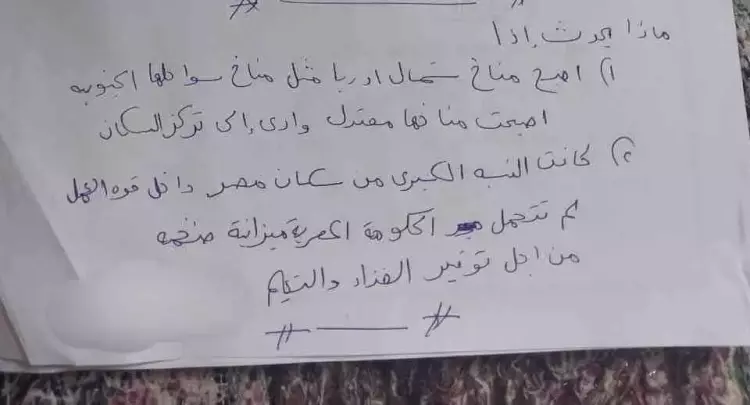 ماذا يحدث إذا
١) اصبح مناخ شمال اوربا مثل مناخ سواحلها الجنوبيه
اصبحت مناخها معتدل وادى إلى تركز السكان
٢) كانت النسبه الكبرى من سكان مصر داخل قوه العمل
لم تتحمل الحكومة المصرية ميزانية ضخمه
من اجل توفير الغذاء والتعليم
# —— #